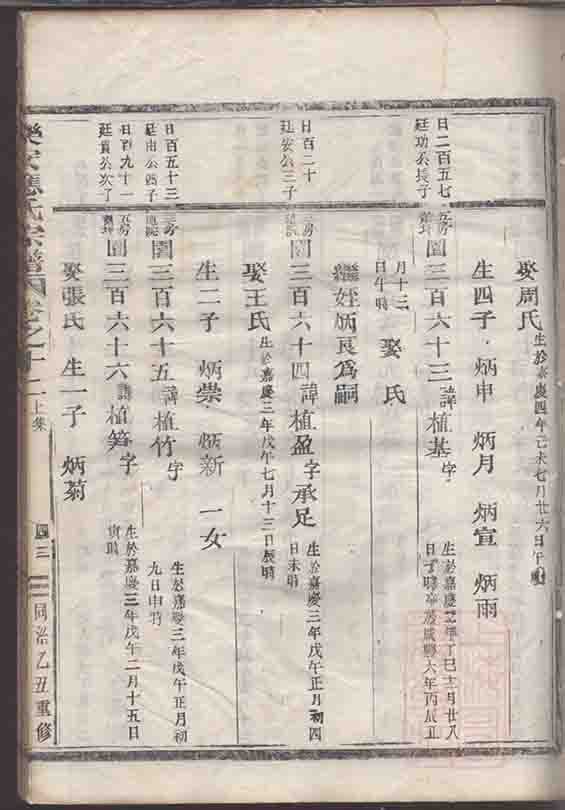 娶周氏 生於嘉慶四年己未七月廿六日午時
生四子 炳申 炳月 炳宣 炳雨
日二百五七
廷功公長子
五房
圍三百六十三 諱植基 字
生於嘉慶 年丁巳十二月廿八
日子時卒於咸豐六年丙辰正
月十三
日午時
娶 氏
繼姪炳艮為嗣
日百二十
廷安公三子
三房
圍三百六十四 諱植盈 字承足
生於嘉慶三年戊午正月初四
日未時
娶王氏 生於嘉慶三年戊午七月十三日辰時
生二子 炳崇 炳新 一女
日百五十三
廷由公四子
三房
圍三百六十五 諱植竹 字
生於嘉慶三年戊午正月初
九日申時
日百九十一
廷貴公次子
五房
圍三百六十六 諱植笋 字
生於嘉慶三年戊午二月十五日
寅時
娶張氏 生一子 炳菊
應氏宗譜 卷之十二 上集 四三 同治乙丑重修